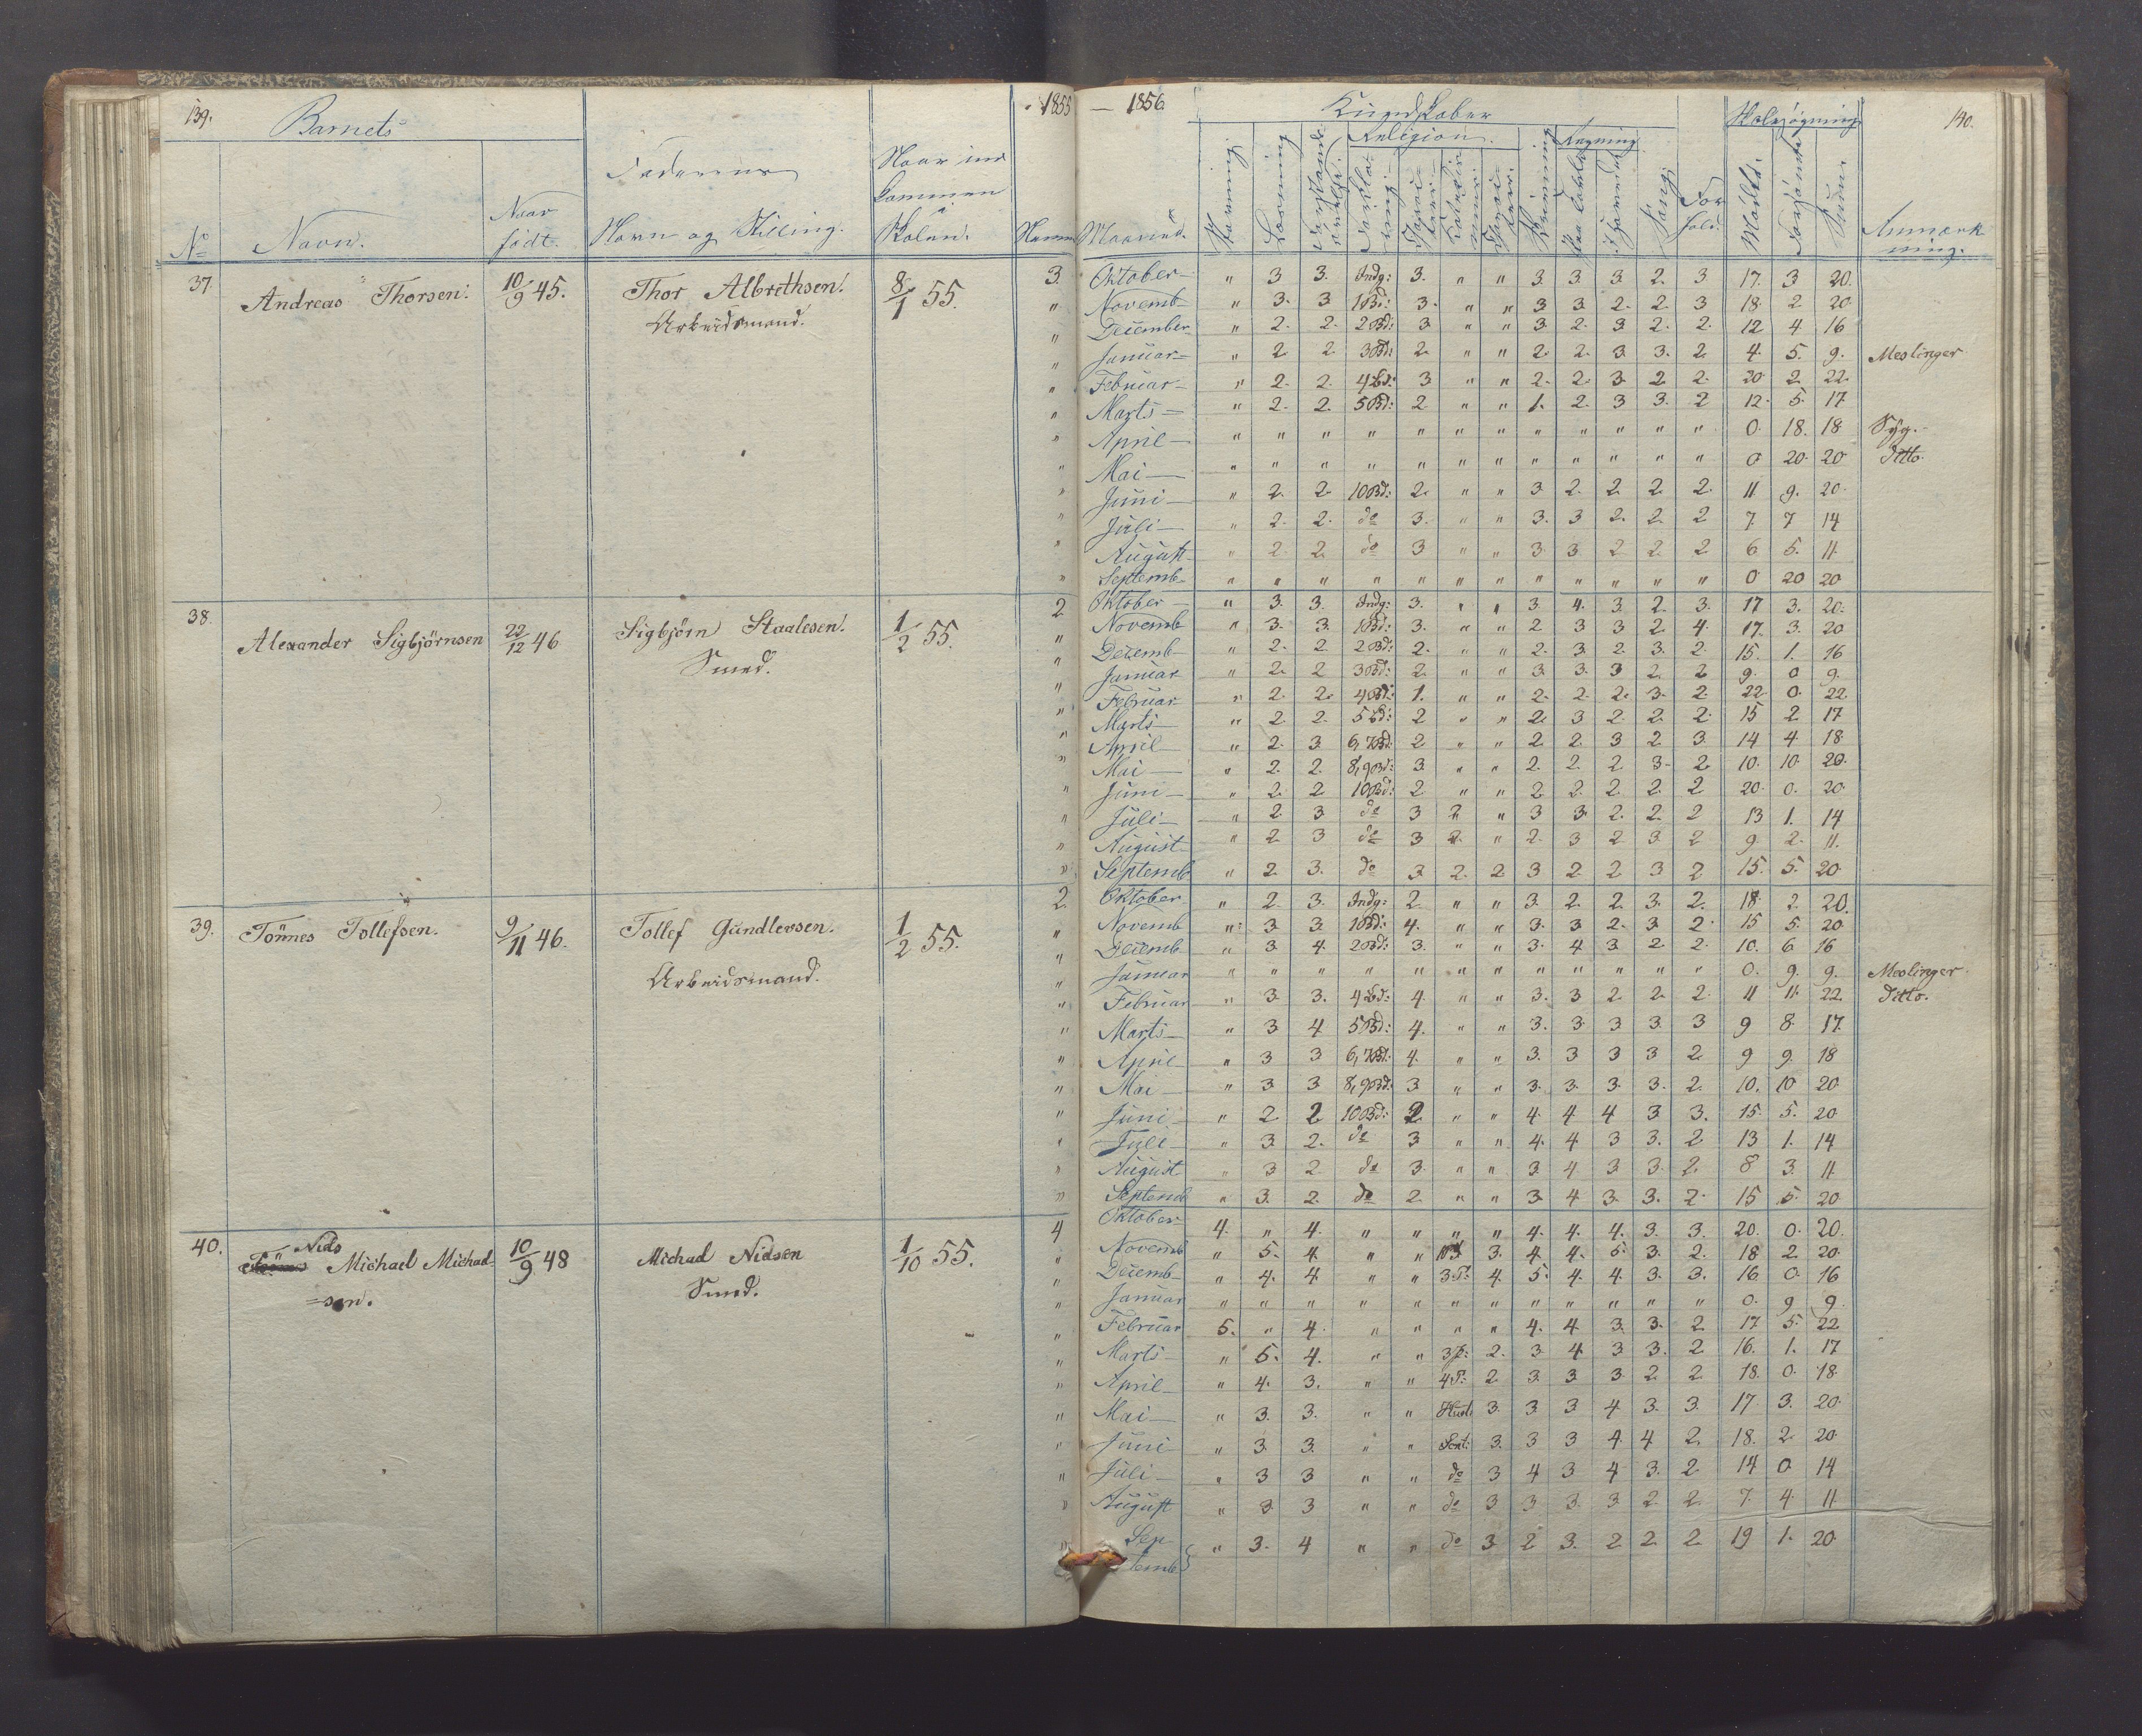 139. Barnets 1855 — 1856. Kundskaber Skolesøgning 140.
Religion Regning
Faderens Naar ind
kommen
Naar i
No Navn. født. Navn og Stilling. Skolen. Maaned. Stavning Læsning Skrivning Paa Tavle Sang For hold. Mödt. Forsömt Sum. Anmærk
ning.
37. Andreas Thorsen. 10/9 45. Thor Albrethsen. 8/1 55. 3. Oktober " 3 3. Indg: 3. " " 3. 3. 3 2. 3. 17. 3 20.
Arbeidsmand. " Novemb " 3. 3 1Bd: 3. " " 3 3 2. 2. 3 18. 2. 20.
" December " 2. 2. 2Bd: 3. " " 3. 2. 3. 2. 2. 12 4 16
" Januar " 2. 2 3Bd: 2. " " 2. 2. 3. 3. 2. 4. 5. 9. Meslinger
" Februar " 2. 2. 4Bd: 3 " " 2. 2. 3. 2 2. 20 2 22.
" Marts " 2. 2. 5Bd: 2 " " 1. 2. 3 3. 2 12. 5. 17.
" April " " " " " " " " " " " " 0. 18. 18 Syg.
" Mai " " " " " " " " " " " " 0 20. 20 Ditto.
" Juni " 2. 2. 10Bd: 2. " " 3 2. 2. 2. 2. 11 9. 20.
" Juli " 2. 2. do 3. " " 3. 3 2. 2. 2 7. 7 14
" August " 2 2. do 3 " " 3. 3 2 2 2 6 5. 11.
" Septemb " " " " " " " " " " " " 0 20 20
38. Alexander Sigbjörnsen 22/12 46 Sigbjörn Staalesen. 1/2 55. 2. Oktober " 3. 3. Indg: 3. " " 3. 4. 3. 2. 3. 17 3. 20.
Smed. Novemb " 3. 3. 1Bd: 3. " " 2 3 3 2. 4. 17. 3. 20
" Decemb " 2. 2. 2Bd: 2. " " 2. 3. 2. 3. 2. 15. 1. 16
" Januar " 2. 2 3Bd: 2. " " 3. 3. 3 2. 2 9. 0 9.
" Februar " 2. 2. 4Bd: 1. " " 2. 2. 2. 3. 2. 22 0. 22.
" Marts " 2. 2. 5Bd: 2 " " 2. 3 2. 2. 2. 15 2 17
" April " 2. 3. 6,7Bd: 2 " " 2 2. 3 2. 3. 14 4 18.
" Mai " 2. 2. 8,9Bd: 3. " " 2. 2. 2 3. 2. 10. 10. 20.
" Juni " 2. 2 10Bd: 2. " " 2. 2. 2. 2. 2 20. 0. 20
" Juli " 2. 3. do 3 2. " 3 3. 2. 2. 2 13 1. 14
" August " 2 3 do 3 2. " 2. 3. 2 3. 2 9. 2. 11.
" Septemb " 2. 3. do 3. 2. 2 3 2 2 3 2 15. 5. 20.
39. Tönnes Tollefsen. 9/11 46. Tollef Gundlersen. 1/2 55. 2. Oktober " 2. 3. Indg: 2. " " 3. 2. 2. 3. 2. 18. 2. 20.
Arbeidsmand. " Novemb " 3. 3. 1Bd: 4. " " 3. 3. 2. 3. 2. 15 5. 20.
" Decemb " 3. 4. 2Bd: 3. " " 3. 4 3. 2. 2. 10. 6 16
" Januar " " " " " " " " " " " " 0. 9. 9. Meslinger.
" Februar " 3. 3. 4Bd: 4. " " 3. 3 2. 2. 2. 11 11. 22. Ditto.
" Marts " 3 4 5Bd: 4. " " 3. 3. 3 3. 3 9 8. 17.
" April " 3 3 6,7Bd: 4. " " 3. 3 3 3 2. 9 9. 18
" Mai " 3 3 8,9Bd: 3 " " 3. 3. 3. 3. 2. 10. 10 20.
" Juni " 2 2 10Bd: 2. " " 4. 4 4 3 3. 15. 5. 20
" Juli " 3 2. do 3 " " 4. 4 3 3. 2 13 1. 14
" August " 3 2 do 3. " " 3. 4. 3 3. 2. 8 3. 11
" Septemb " 3. 2. do 2. " " 3. 4 3. 3. 2. 15 5. 20
40. Niels Michael Michael- 10/9 48 Michael Nielsen 1/10 55. 4 Oktober 4. " 4. " " " " 4. 4. 4. 3. 3. 20. 0. 20.
=sen. Smed. " Novemb " 5. 4. " " 3. 4. 4. 5. 3. 2. 18 2. 20.
" Decemb " 4. 4. " " 3.P: 4. 5. 4. 4. 3. 3. 16 0. 16
" Januar " " " " " " " " " " " " 0. 9 9.
" Februar 5. " 4. " " " " 4. 4. 3. 3. 2. 17 5. 22
" Marts " 5. 4. " " 3p: 2. 3. 4. 3 3. 2 16. 1. 17
" April " 4. 3. " " 4P: 2 3. 3 3. 2. 2. 18. 0. 18.
" Mai " 3. 3. " " Hust: 3. 3. 3. 4 3. 3. 17 3. 20.
" Juni " 3. 3. " " 3. 3 3 4. 4 2. 18. 2 20.
" Juli " 3 3 " " do 3 4 3 4 3. 2. 14 0 14
" August " 3 3 " " do 3 3 3. 3. 2. 2. 7. 4. 11.
" Sep
temb } " 3. 4 " " do 3. 2 3. 2 2. 2. 19 1. 20.